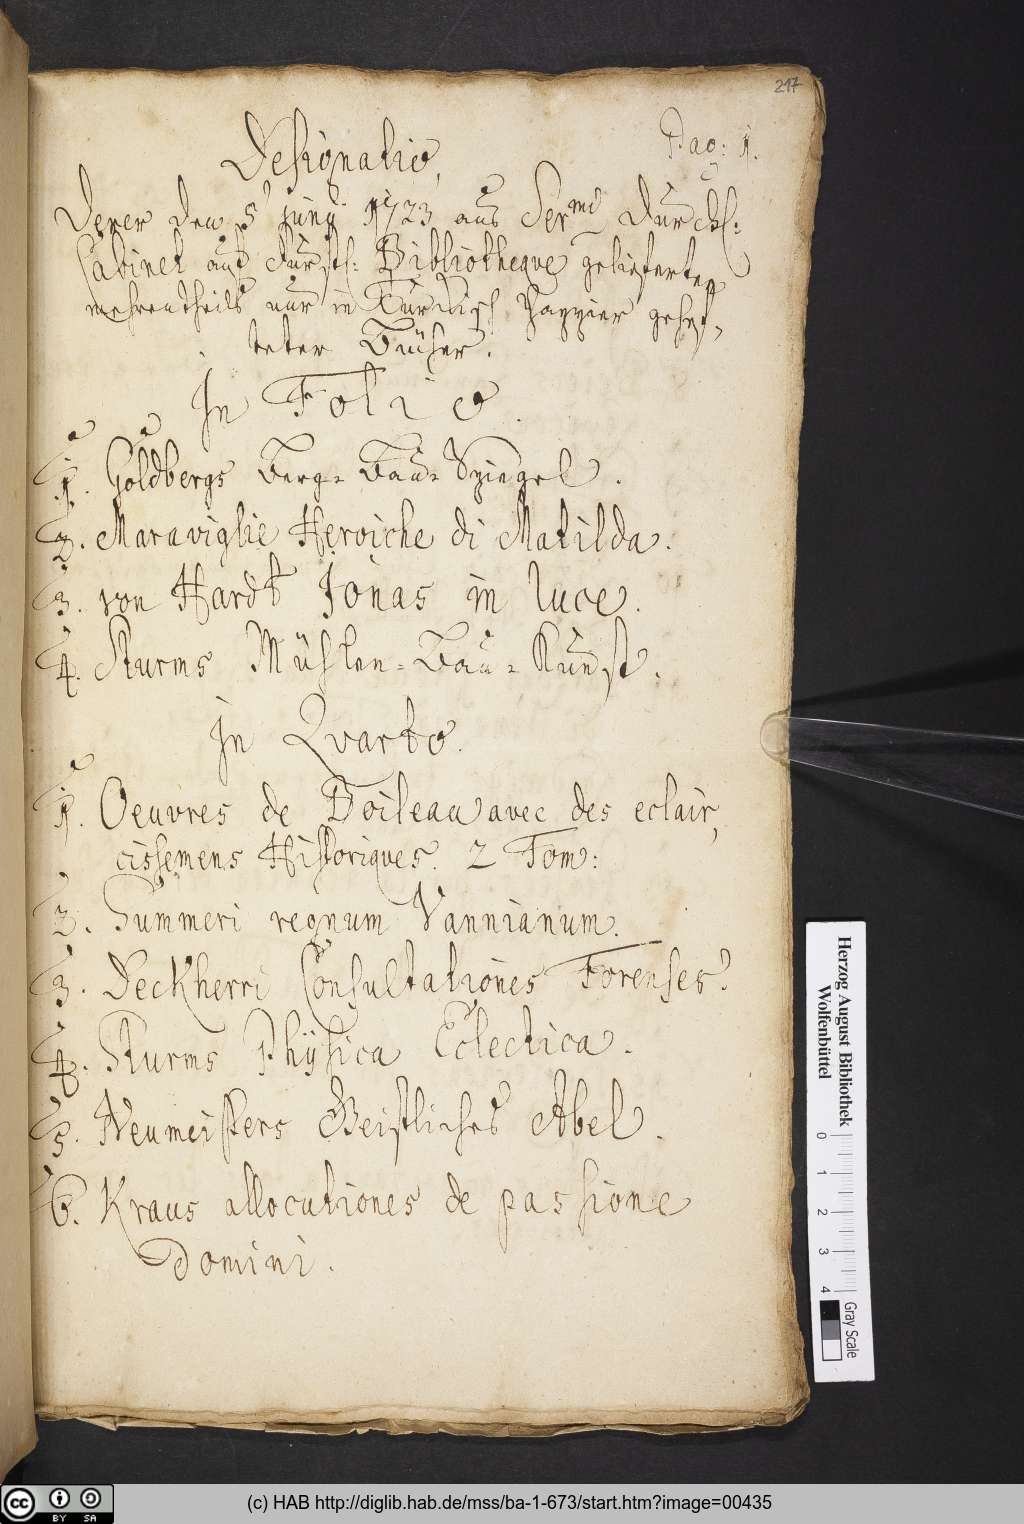 217
Pag: 1.
Designatio,
Derer den 5t Junÿ 1723 aus Sermi Durchl:
Cabinet auf Fürstl: Bibliotheque gelieferten
mehrentheils nur in Türckisch Pappier gehef-
teter Bücher.
In Folio
1. Goldbergs Berg-Bau-Spiegel.
2. Maraviglie Heroiche di Matilda.
3. von Hardt Jonas in luce.
4. Sturms Mühlen-Bau-Kunst.
In Qvarto.
1. Oeuvres de Boileau avec des eclair,
cissemens Historiques. 2 Tom:
2. Summeri regnum Vannianum.
3. Deckherri Consultationes Forenses.
4. Sturms Phÿsica Eclectica.
5. Neumeisters Geistliches Abel.
6. Kraus allocutiones de passione
Domini.
Herzog August Bibliothek
Wolfenbüttel
0 1 2 3 4
Gray Scale
cc BY SA
(c) HAB http://diglib.hab.de/mss/ba-1-673/start.htm?image=00435